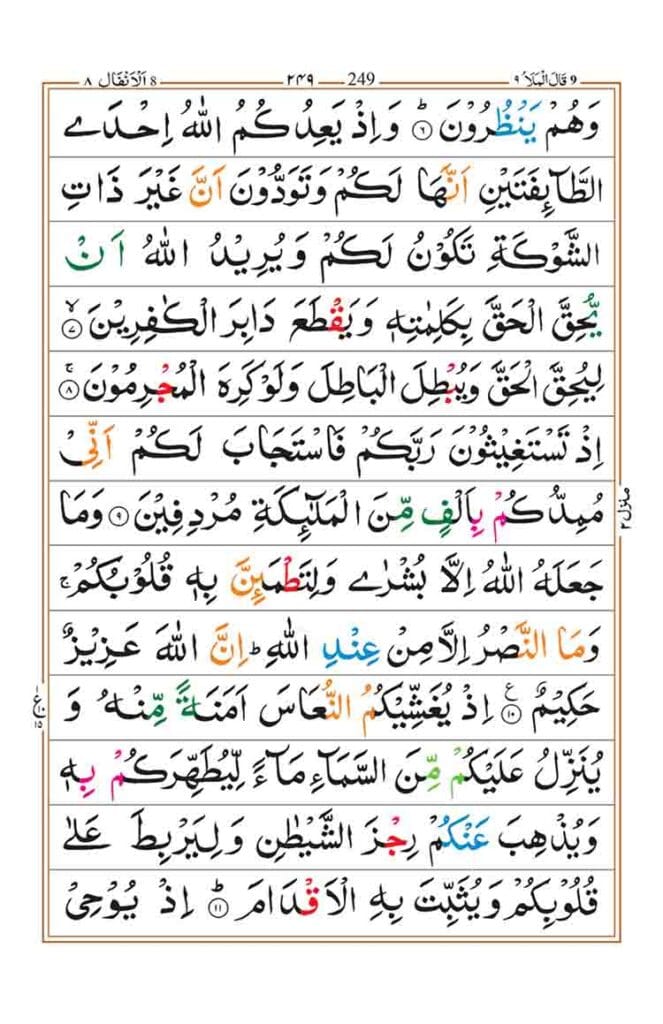 ٩ قال الملا 9 249 ٢٤٩ 8 الانفال ٨
وَهُمْ يَنْظُرُوْنَ ؕ﴿۶﴾ وَاِذْ يَعِدُكُمُ اللّٰهُ اِحْدَى
الطَّآئِفَتَيْنِ اَنَّهَا لَكُمْ وَتَوَدُّوْنَ اَنَّ غَيْرَ ذَاتِ
الشَّوْكَةِ تَكُوْنُ لَكُمْ وَيُرِيْدُ اللّٰهُ اَنْ
يُّحِقَّ الْحَقَّ بِكَلِمٰتِهٖ وَيَقْطَعَ دَابِرَ الْكٰفِرِيْنَ ۙ﴿۷﴾
لِيُحِقَّ الْحَقَّ وَيُبْطِلَ الْبَاطِلَ وَلَوْ كَرِهَ الْمُجْرِمُوْنَ ۚ﴿۸﴾
اِذْ تَسْتَغِيْثُوْنَ رَبَّكُمْ فَاسْتَجَابَ لَكُمْ اَنِّىْ
مُمِدُّكُمْ بِاَلْفٍ مِّنَ الْمَلٰٓئِكَةِ مُرْدِفِيْنَ ﴿۹﴾ وَمَا
جَعَلَهُ اللّٰهُ اِلَّا بُشْرٰى وَلِتَطْمَئِنَّ بِهٖ قُلُوْبُكُمْ ۚ
وَمَا النَّصْرُ اِلَّا مِنْ عِنْدِ اللّٰهِ ؕ اِنَّ اللّٰهَ عَزِيْزٌ
حَكِيْمٌ ﴿۱۰﴾ ع اِذْ يُغَشِّيْكُمُ النُّعَاسَ اَمَنَةً مِّنْهُ وَ
يُنَزِّلُ عَلَيْكُمْ مِّنَ السَّمَآءِ مَآءً لِّيُطَهِّرَكُمْ بِهٖ
وَيُذْهِبَ عَنْكُمْ رِجْزَ الشَّيْطٰنِ وَلِيَرْبِطَ عَلٰى
قُلُوْبِكُمْ وَيُثَبِّتَ بِهِ الْاَقْدَامَ ؕ﴿۱۱﴾ اِذْ يُوْحِىْ
منزل ٢